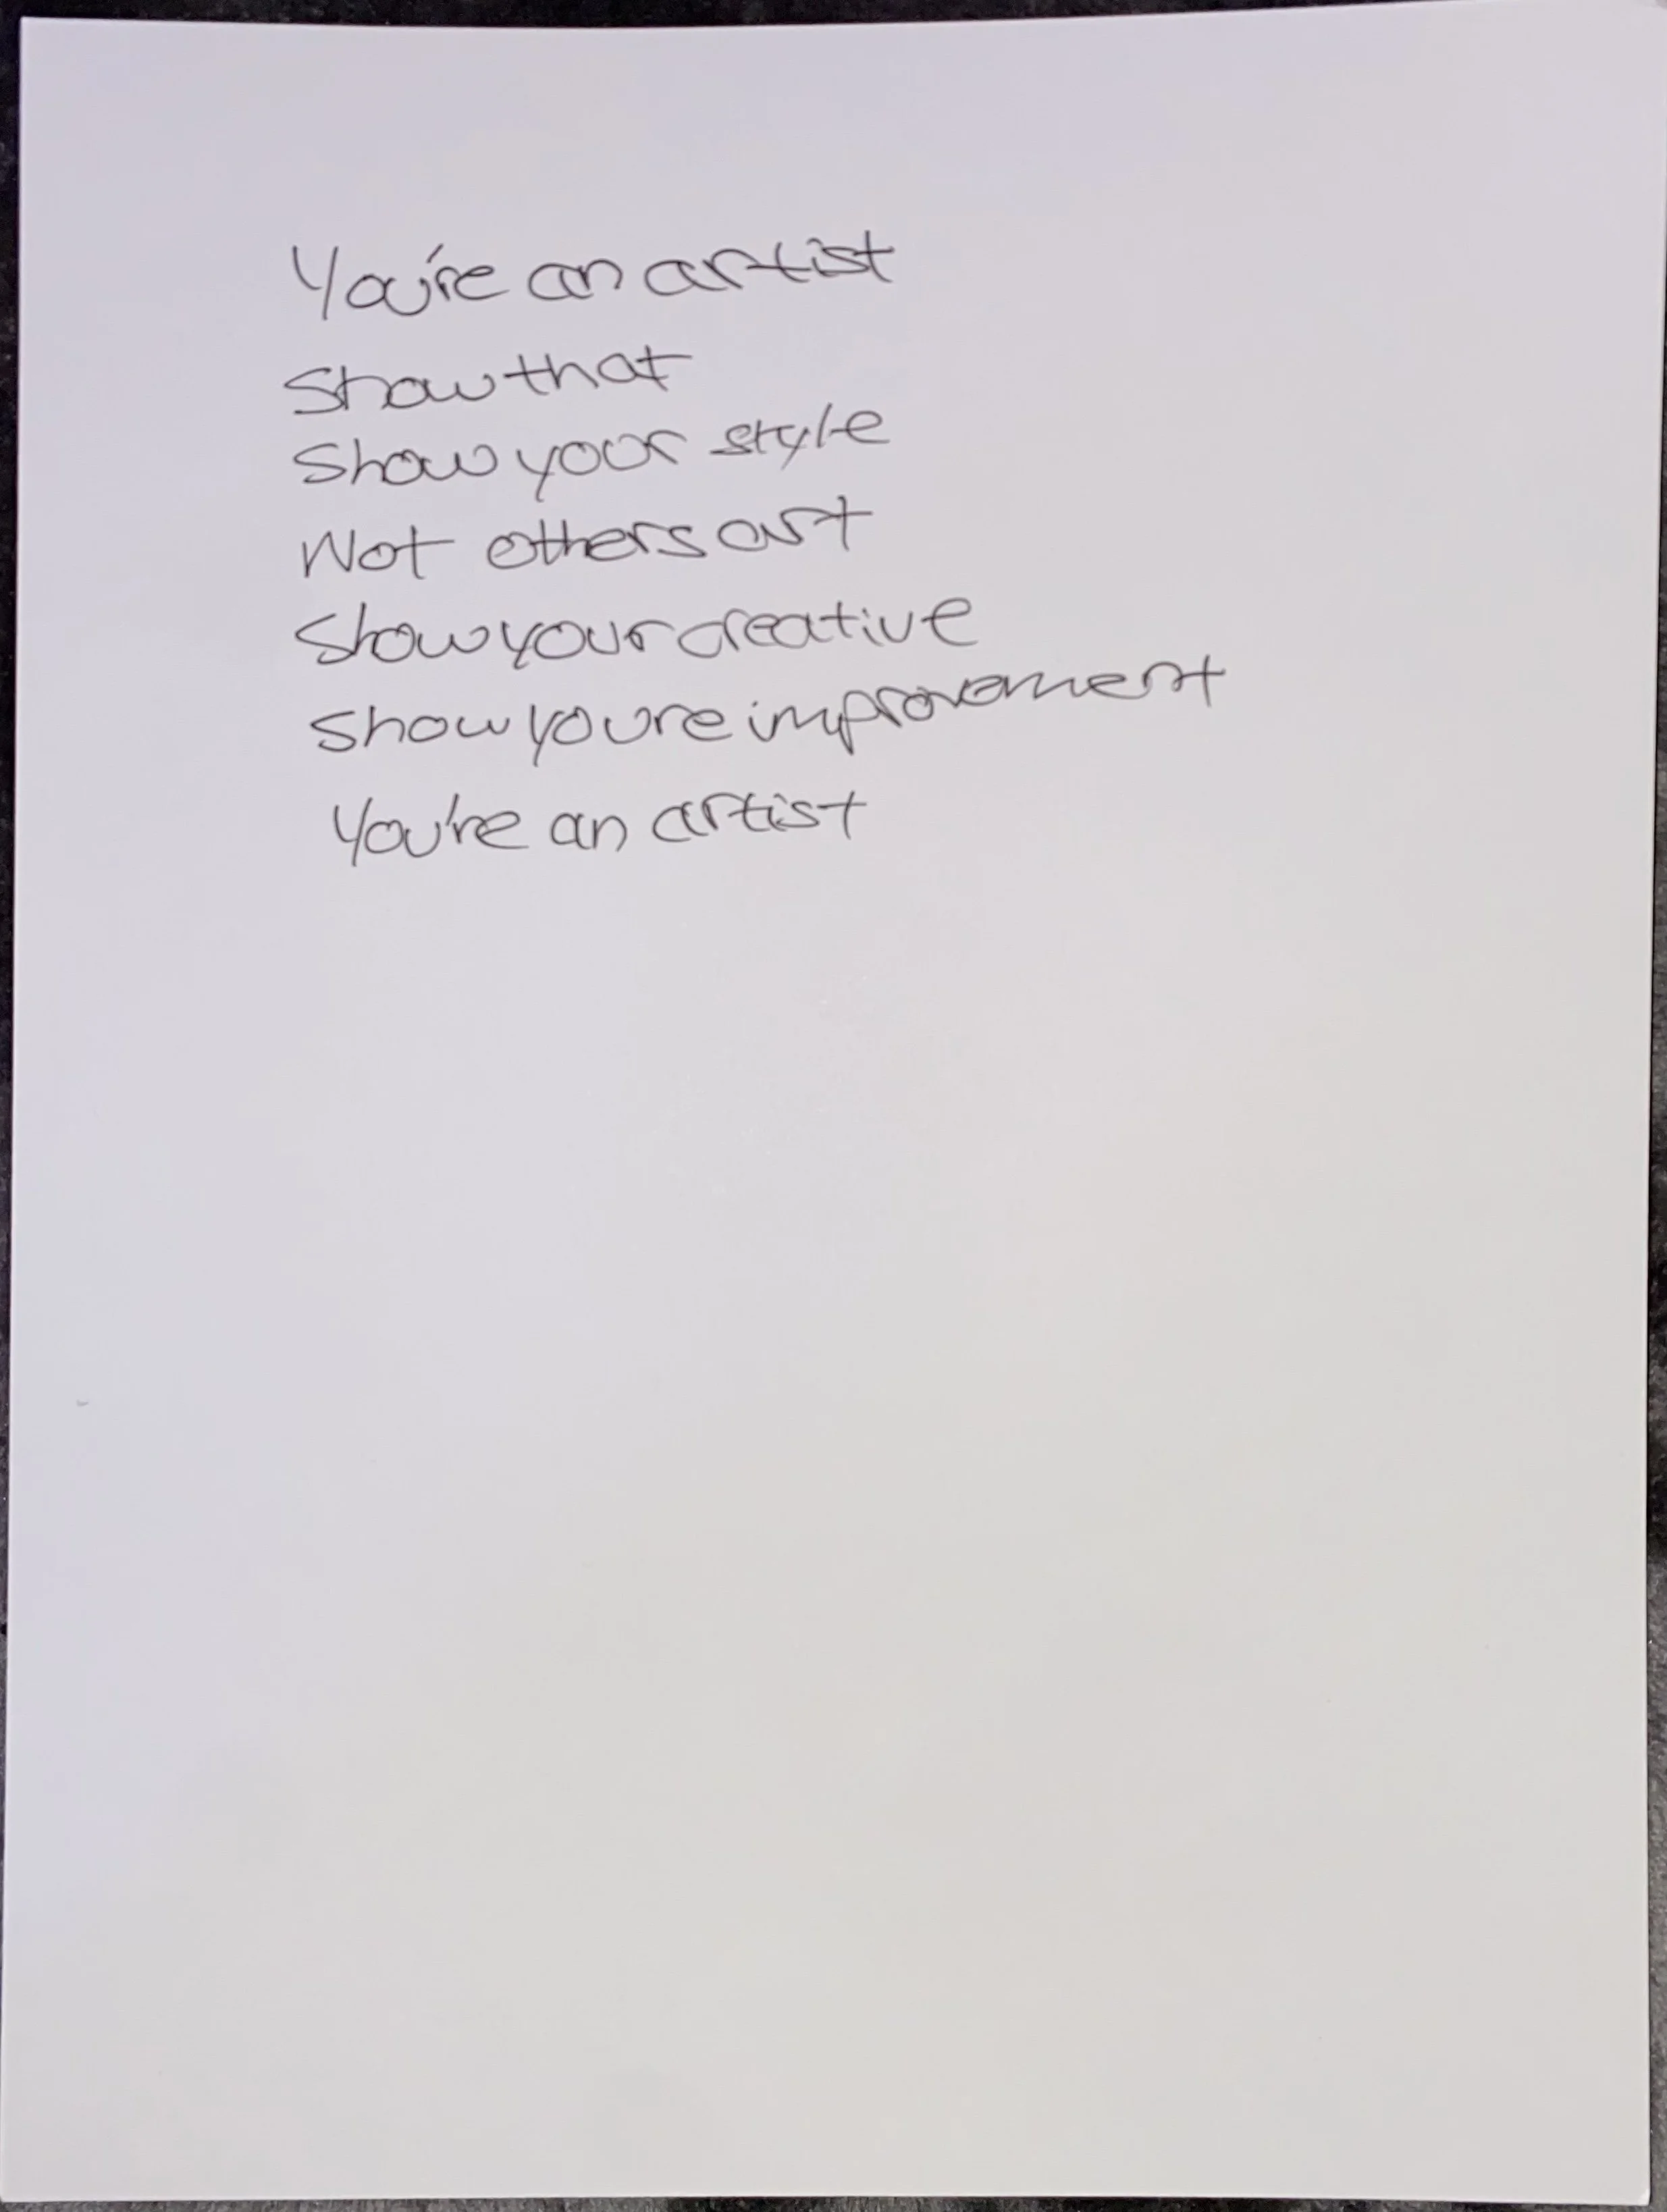 You're an artist
Show that
Show your style
Not others art
Show your creative
Show youre improvement
You're an artist